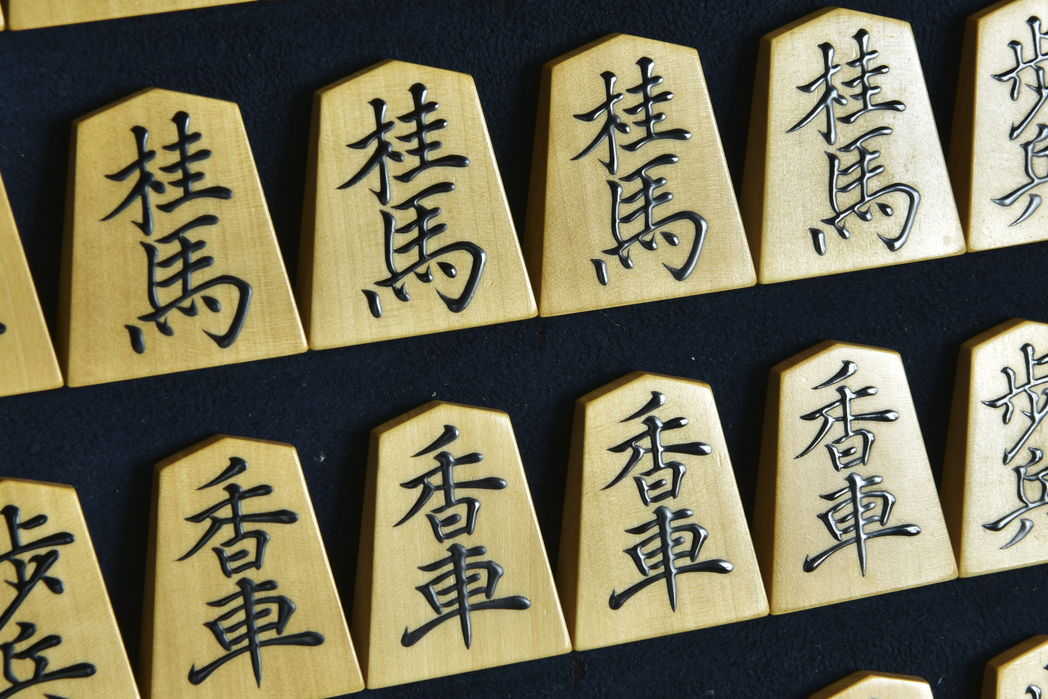 桂馬
桂馬
桂馬
桂馬
歩兵
歩兵
香車
香車
香車
香車
歩兵